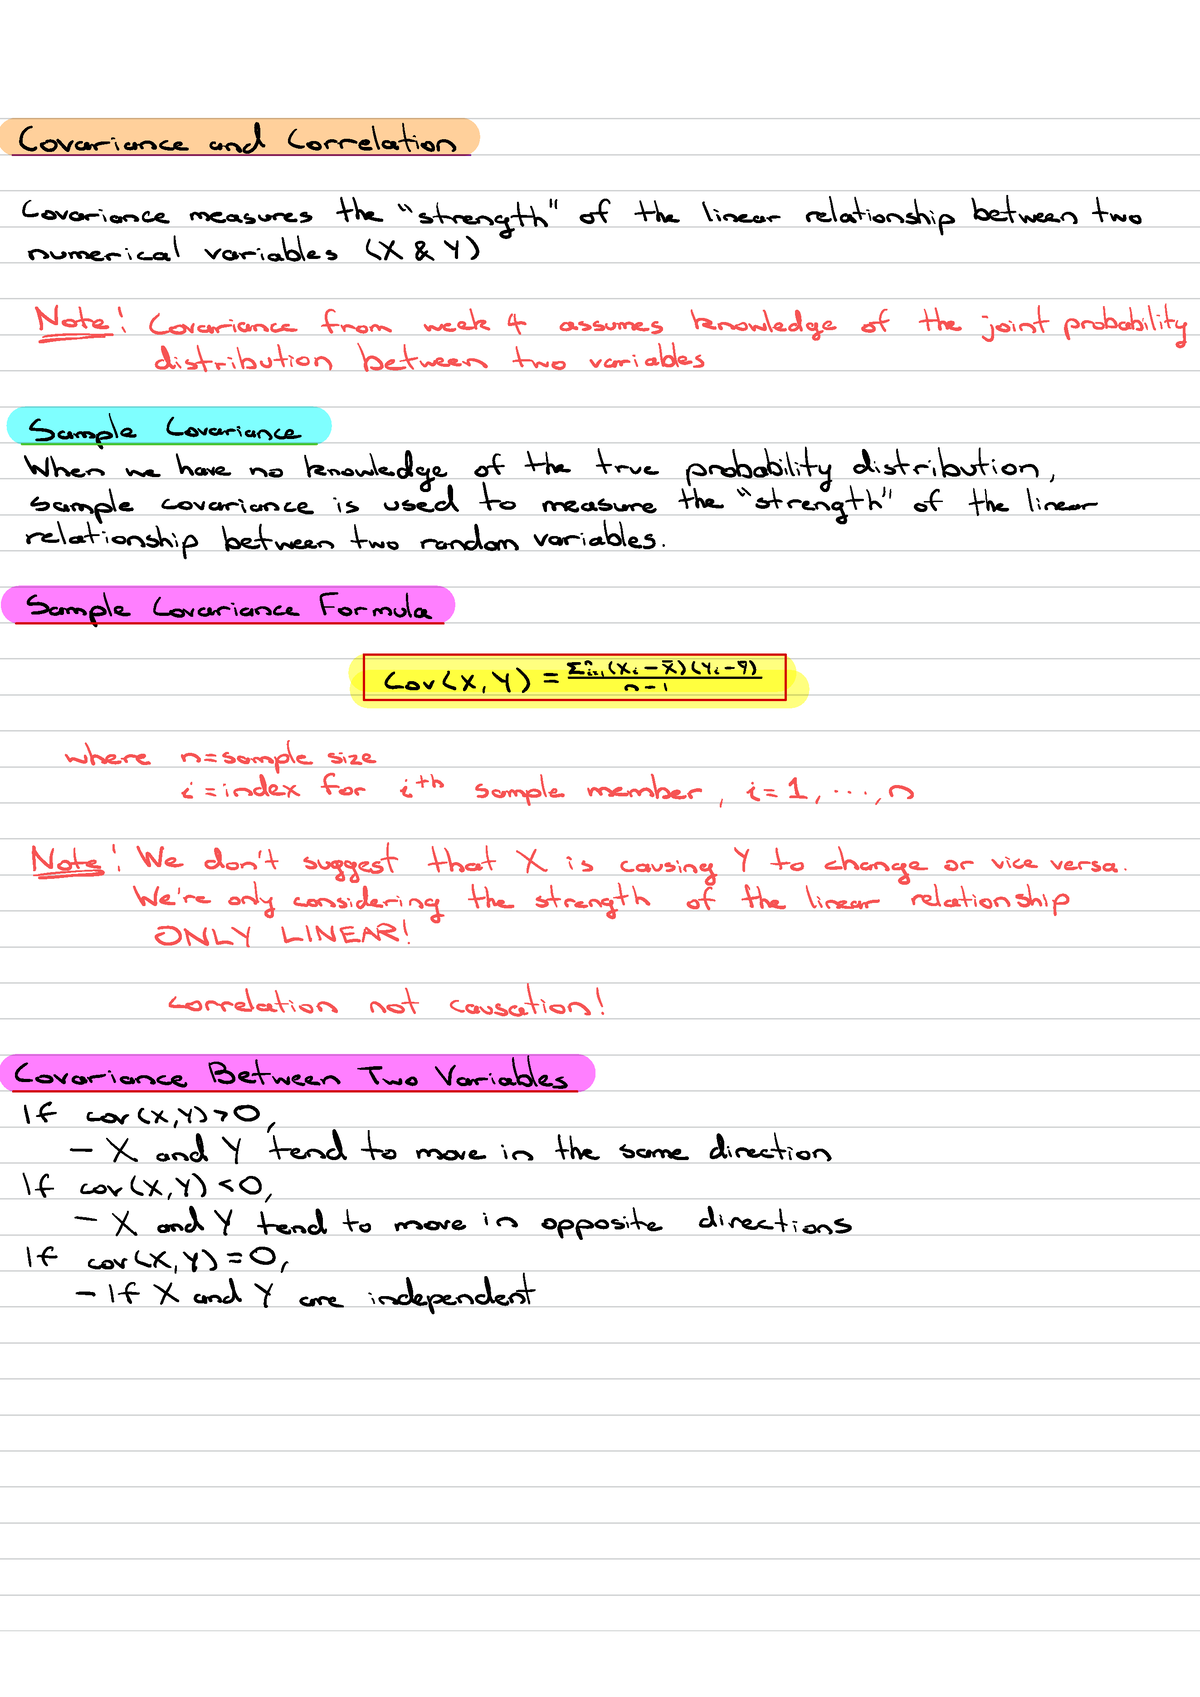 Covariance and Correlation
Covariance measures the "strength" of the linear relationship between two
numerical variables (X & Y)
Note: Covariance from week 4 assumes knowledge of the joint probability
distribution between two variables
Sample Covariance
When we have no knowledge of the true probability distribution,
sample covariance is used to measure the "strength" of the linear
relationship between two random variables.
Sample Covariance Formula
Cov(X,Y) = Σⁿᵢ₌₁(Xᵢ-X̄)(Yᵢ-Ȳ) / n-1
where n=sample size
i=index for iᵗʰ sample member, i=1,...,n
Note: We don't suggest that X is causing Y to change or vice versa.
We're only considering the strength of the linear relationship
ONLY LINEAR!
correlation not causation!
Covariance Between Two Variables
If cov(X,Y)>0,
- X and Y tend to move in the same direction
If cov(X,Y)<0,
- X and Y tend to move in opposite directions
If cov(X,Y)=0,
- If X and Y are independent